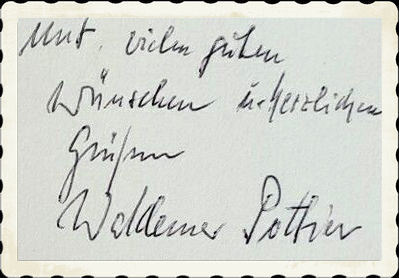 Mit vielen guten
Wünschen u. herzlichen
Grüßen
Waldemar Pottier